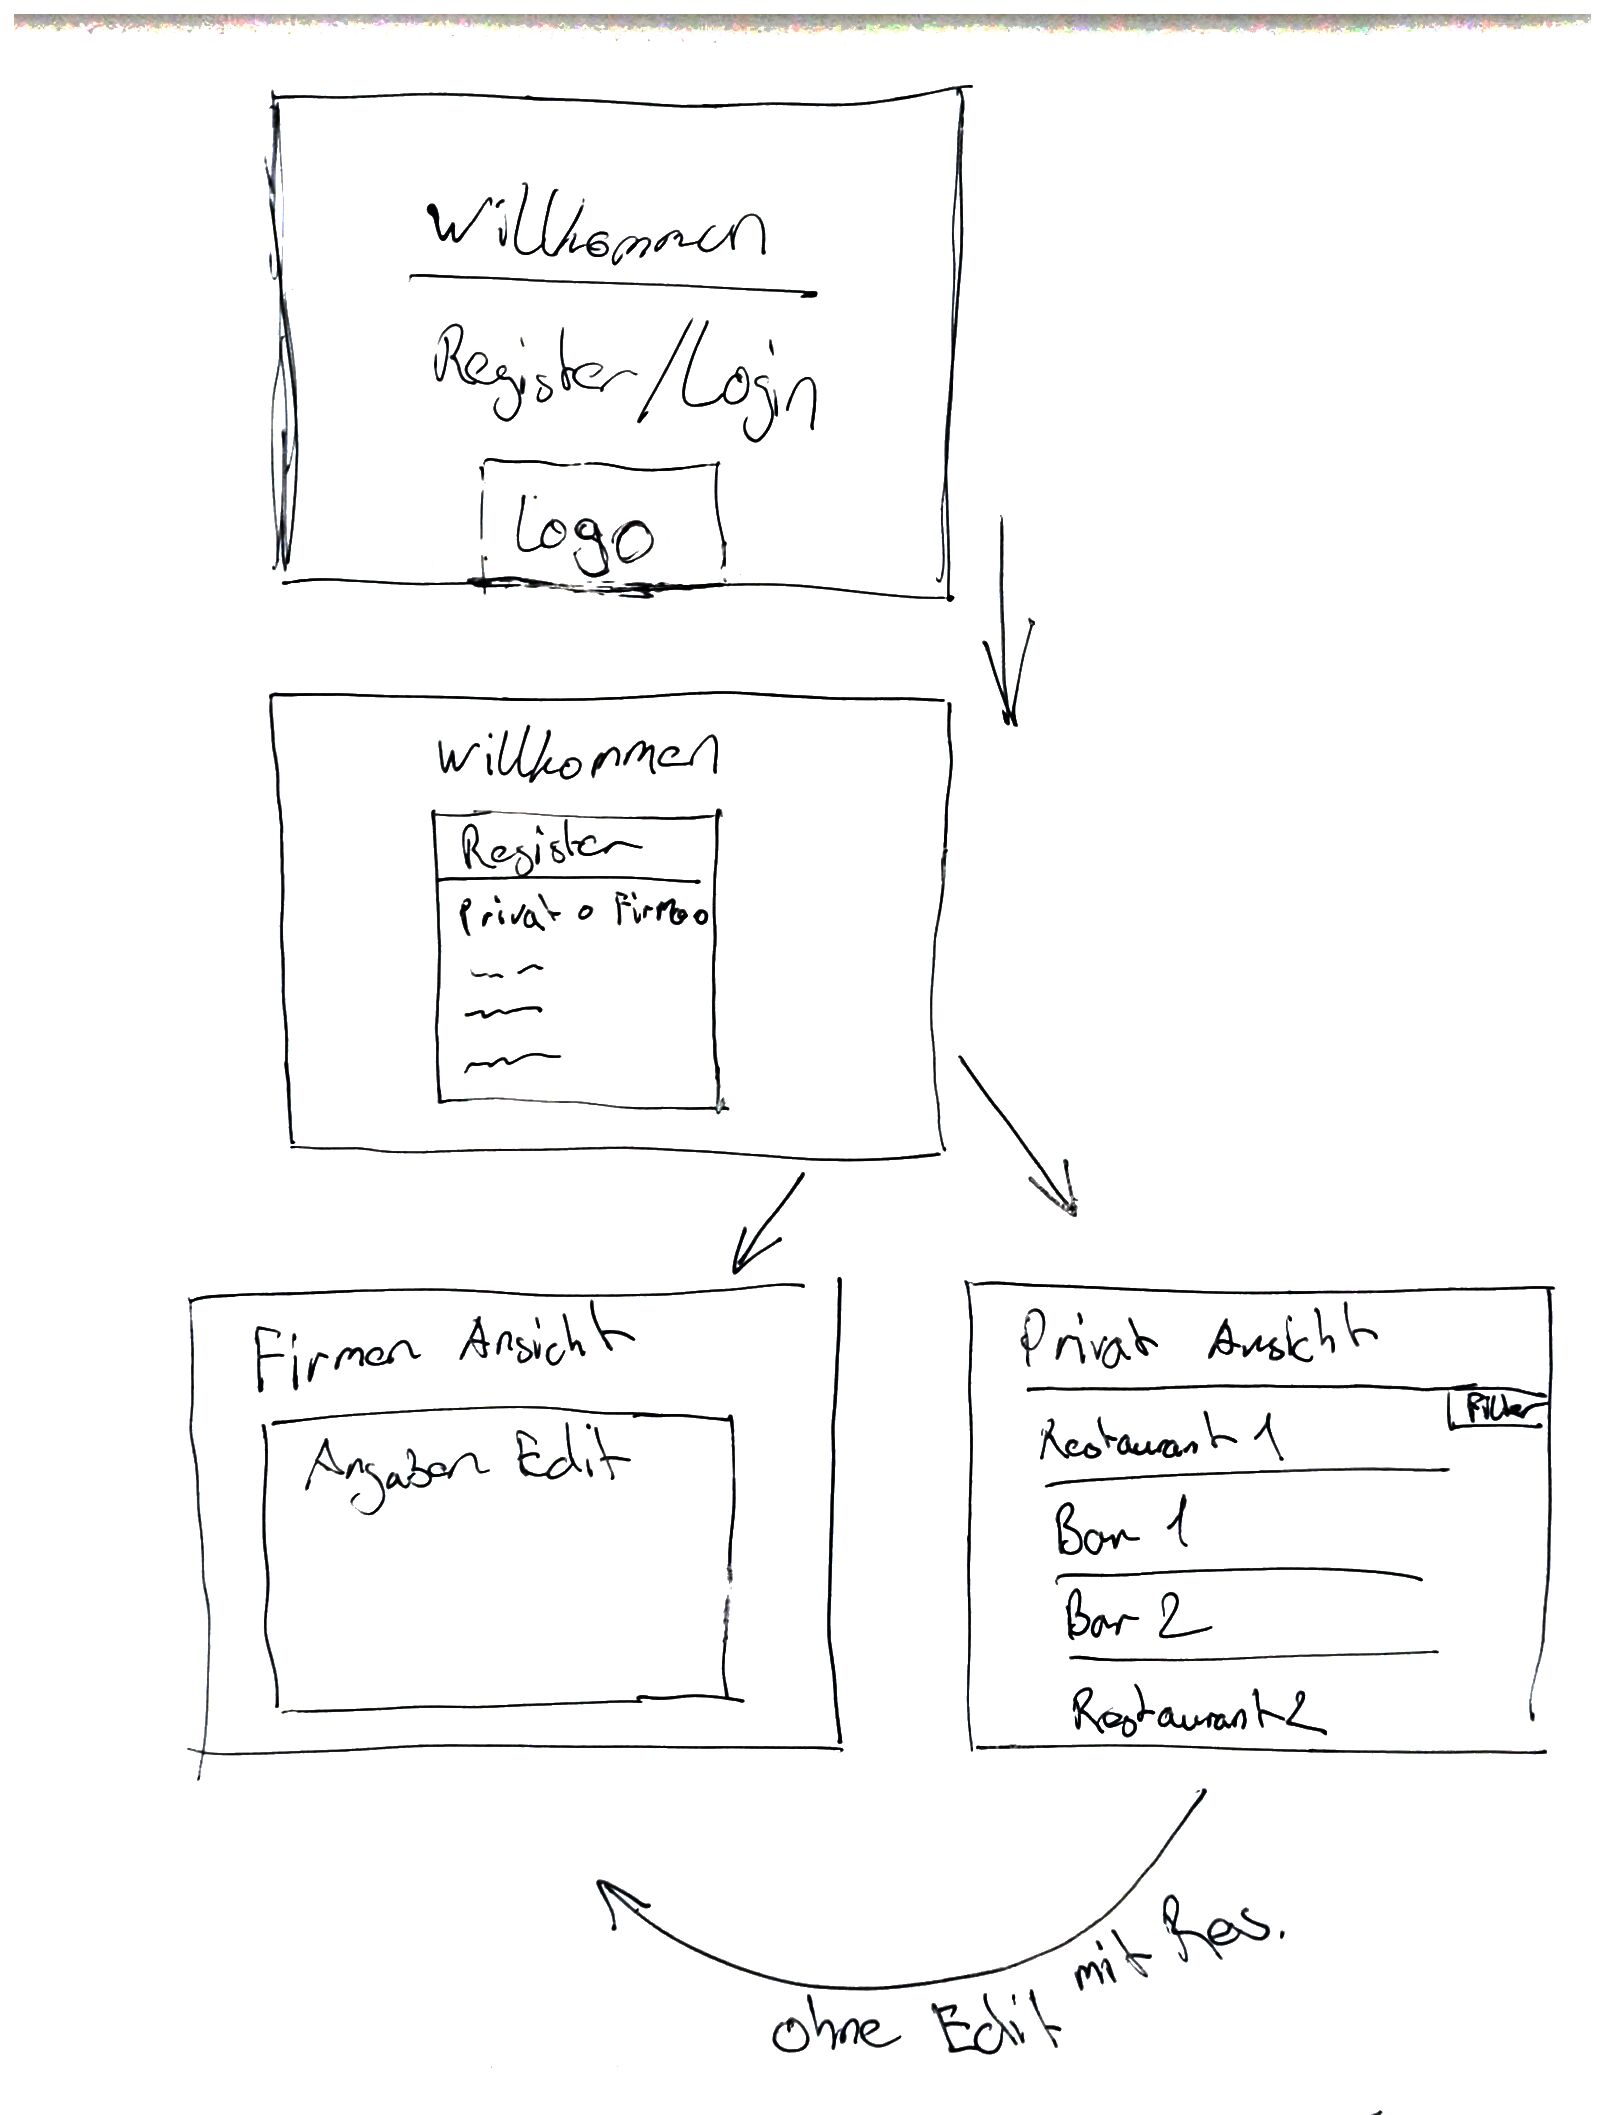 Willkommen
Register/Login
Logo
Willkommen
Register
Privat o Firma o
Firmen Ansicht
Angaben Edit
Privat Ansicht
Filter
Restaurant 1
Bar 1
Bar 2
Restaurant 2
ohne Edit mit Res.